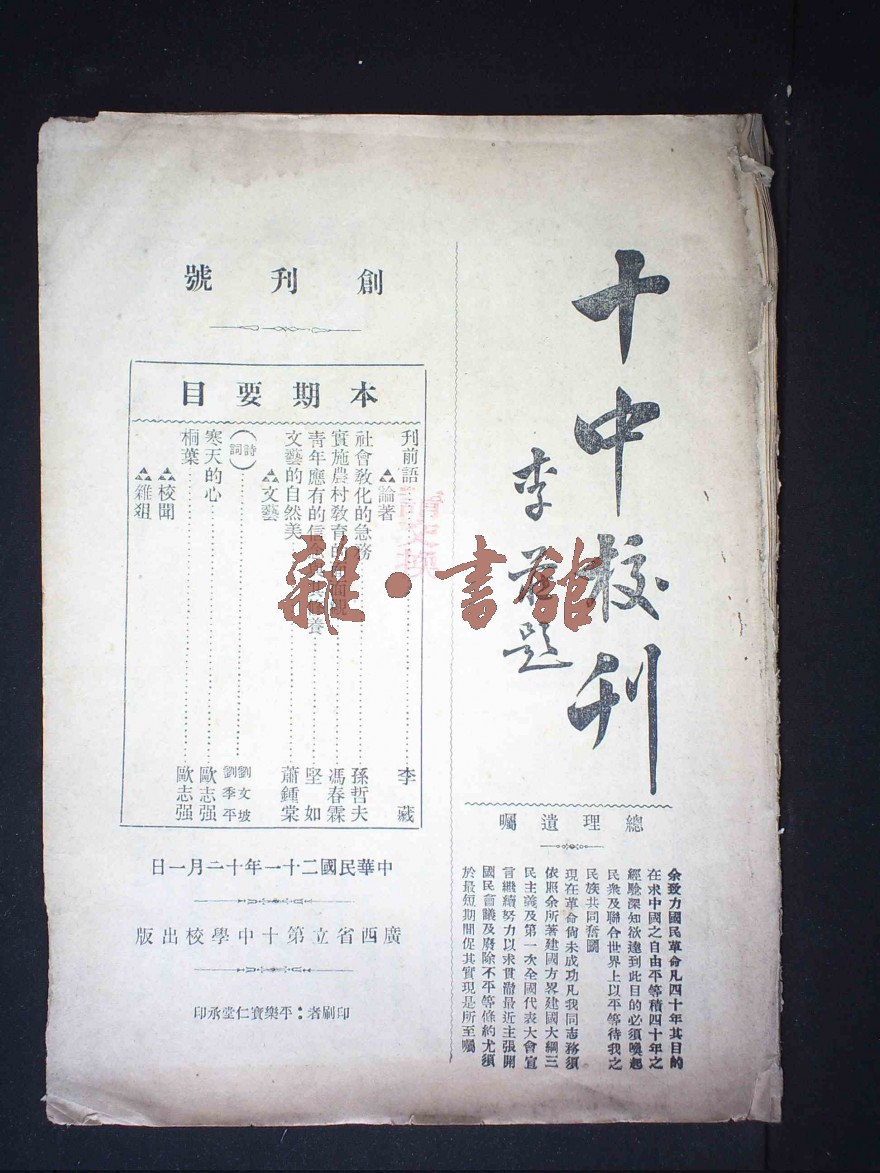 十中校刊
李 題
總理遺囑
余致力國民革命凡四十年其目的
在求中國之自由平等積四十年之
經驗深知欲達到此目的必須喚起
民衆及聯合世界上以平等待我之
民族共同奮鬭
現在革命尙未成功凡我同志務須
依照余所著建國方畧建國大綱三
民主義及第一次全國代表大會宣
言繼續努力以求貫澈最近主張開
國民會議及廢除不平等條約尤須
於最短期間促其實現是所至囑
創刊號
本期要目
刊前語 李蕆
論著
社會敎化的急務 孫哲夫
實施農村敎育的 馮春霖
靑年應有的信 養 堅如
文藝的自然美 蕭鍾棠
文藝
(詩詞) 劉文坡 劉季平
寒天的心 歐志强
桐葉 歐志强
校聞
雜俎
中華民國二十一年十二月一日
廣西省立第十中學校出版
印刷者：平樂寶仁堂承印
請交換
雜·書館